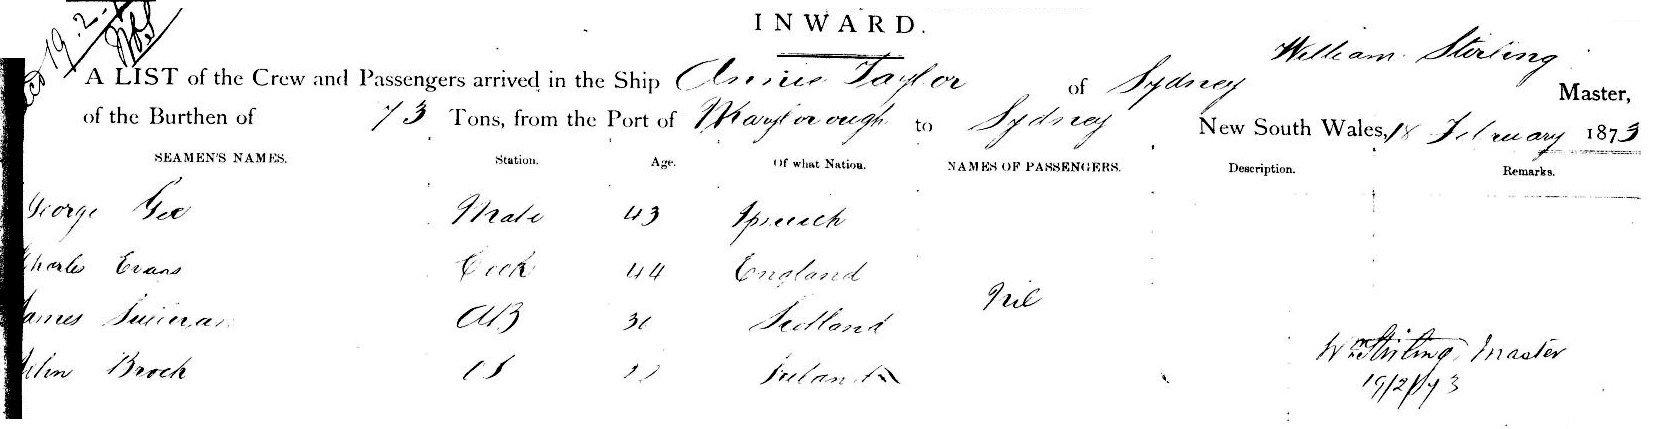 19.2.
INWARD.
William Stirling
A LIST of the Crew and Passengers arrived in the Ship Annie Taylor of Sydney Master,
of the Burthen of 73 Tons, from the Port of Maryborough to Sydney New South Wales, 18 February 1873
SEAMEN'S NAMES. Station. Age. Of what Nation. NAMES OF PASSENGERS. Description. Remarks.
George Gee Mate 43 Ipswich
Charles Evans Cook 44 England
Nil
James AB Scotland
Brock OS Ireland
Wm Stirling Master
19/2/73